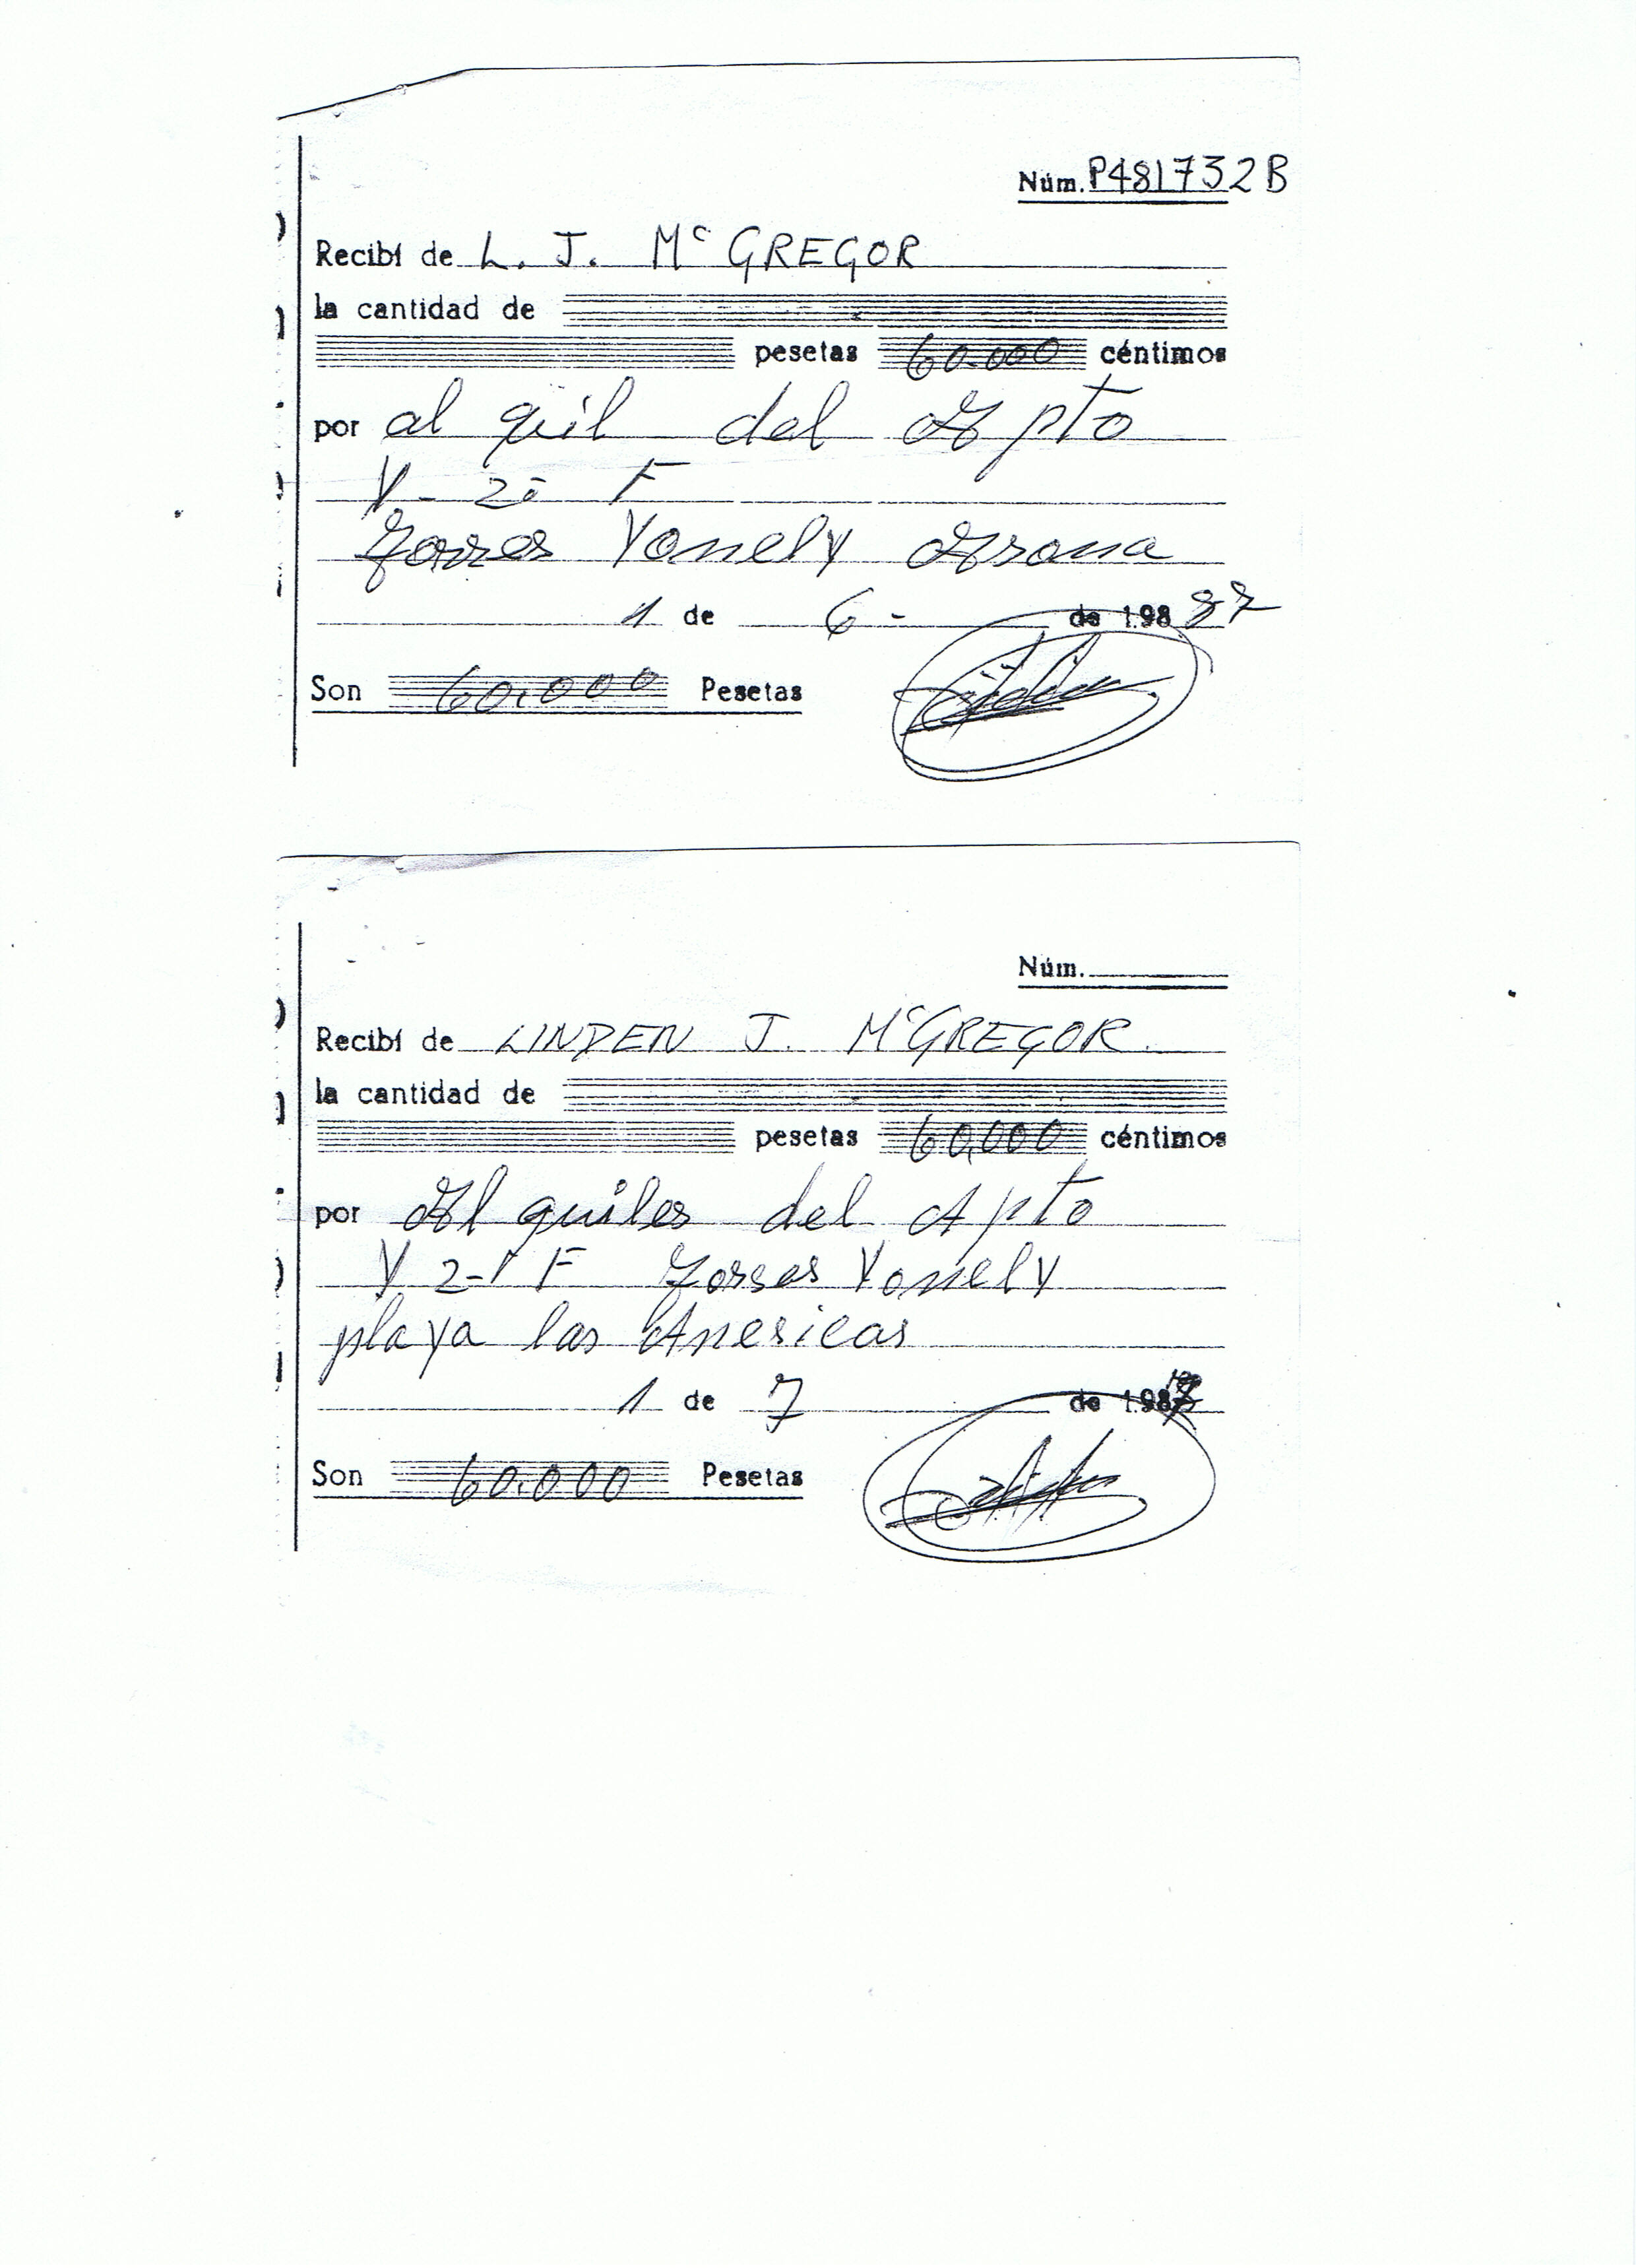 Núm. P481732B
Recibí de L. J. Mc GREGOR
la cantidad de
pesetas 60.000 céntimos
por al quil del Apto
V- 2i F
Torres Yomely Arona
1 de 6 - de 198 87
Son 60.000 Pesetas
Núm.
Recibí de LINDEN J. McGREGOR.
la cantidad de
pesetas 60,000 céntimos
por Al quiles del Apto
V 2-1 F Torres Yomely
playa las Americas
1 de 7 de 1987
Son 60.000 Pesetas